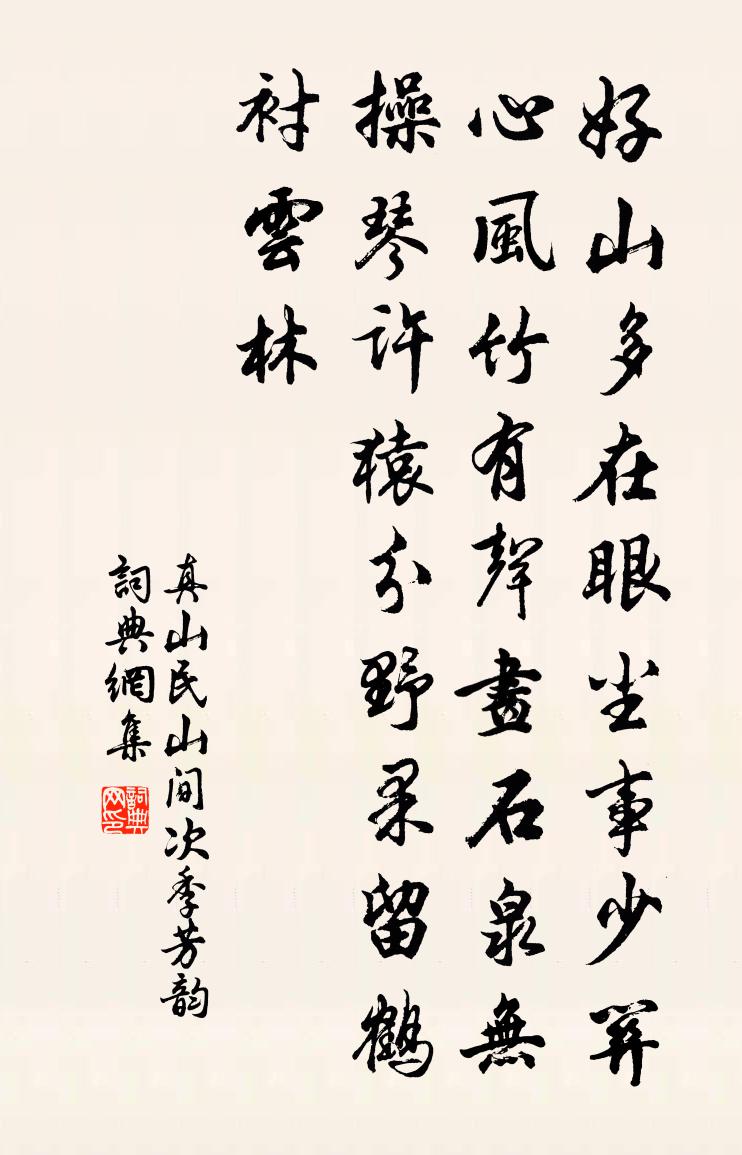 好山多在眼尘事少关
心風竹有聲畫石泉無
操琴許猿分野果留鶴
衬雲林
真山民山间次季芳韵
詞典網集
詞典网印